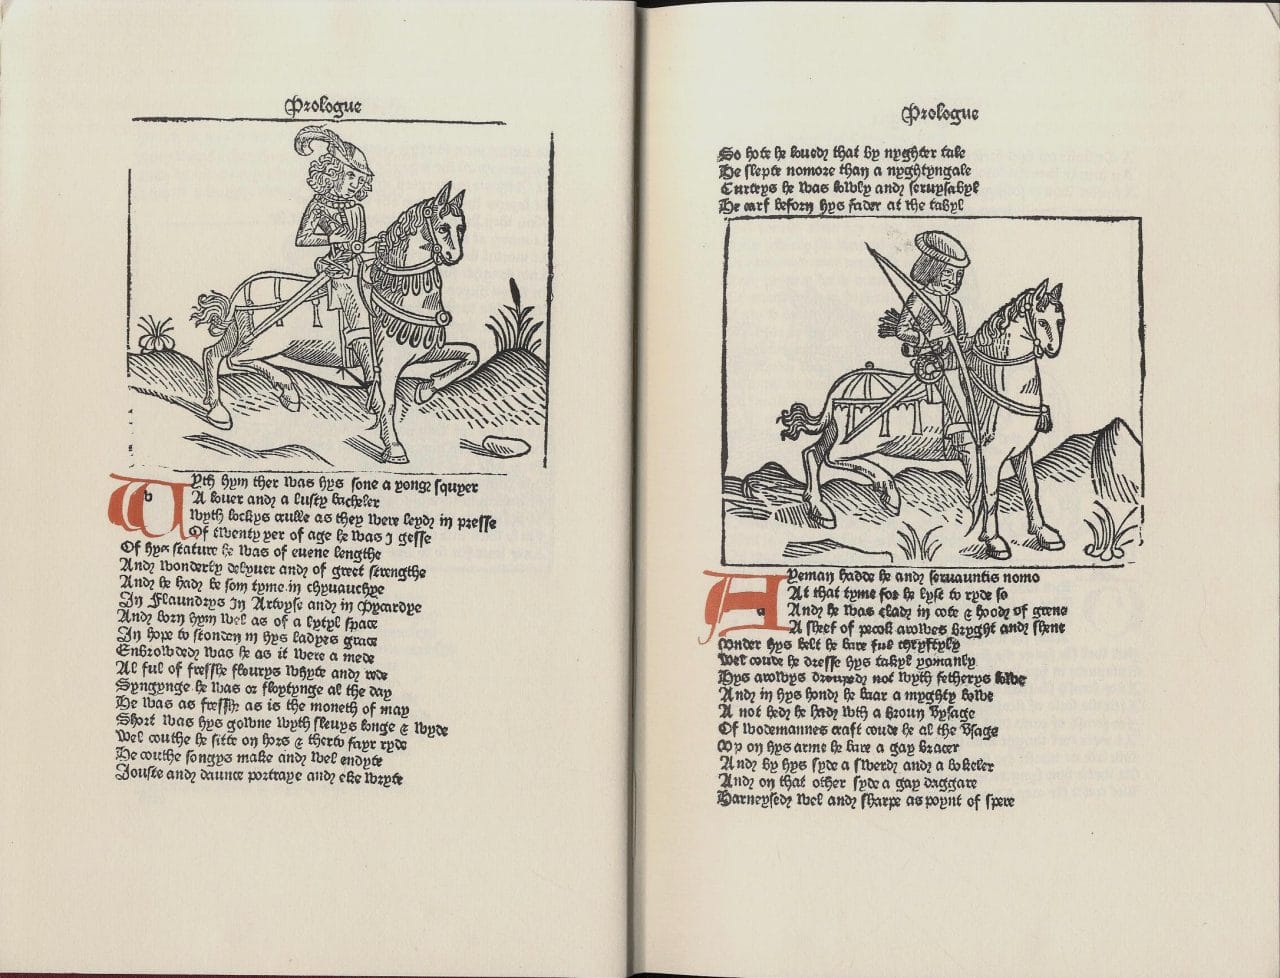 Prologue
Wyth hym ther was hys sone a yong squyer
A louer and a lusty bacheler
Wyth lockys crulle as they were leyd in presse
Of twenty yer of age he was I gesse
Of hys stature he was of euene lengthe
And wonderly delyuer and of greet strengthe
And he had be som tyme in chyuauchye
In Flaundrys In Artoyse and in Pycardye
And born hym wel as of a lytyl space
In hope to stonden in hys ladyes grace
Enbrowded was he as it were a mede
Al ful of fresshe flourys whyte and rede
Syngynge he was or floytynge al the day
He was as fressh as is the moneth of may
Short was hys gowne wyth sleuys longe & wyde
Wel couthe he sitte on hors & therto fayr ryde
He couthe songys make and wel endyte
Iouste and daunce portraye and eke wryte
Prologue
So hote he loued that by nyghter tale
He slepte nomore than a nyghtyngale
Curteys he was lowly and seruysabyl
He carf beforn hys fader at the tabyl
A yeman hadde he and seruauntis nomo
At that tyme for he lyst to ryde so
And he was clad in cote & hood of grene
A sheef of pecok arowes bryght and shene
Under hys belt he bare ful thryftyly
Wel coude he dresse hys takyl yomanly
Hys arowys drouped not wyth fetherys lowe
And in hys hond he baar a myghty bowe
A not hed he had wth a broun vysage
Of wodemannes craft coude he al the vsage
Vp on hys arme he bare a gay bracer
And by hys syde a swerd and a bokeler
And on that other syde a gay daggare
Harneysed wel and sharpe as poynt of spere